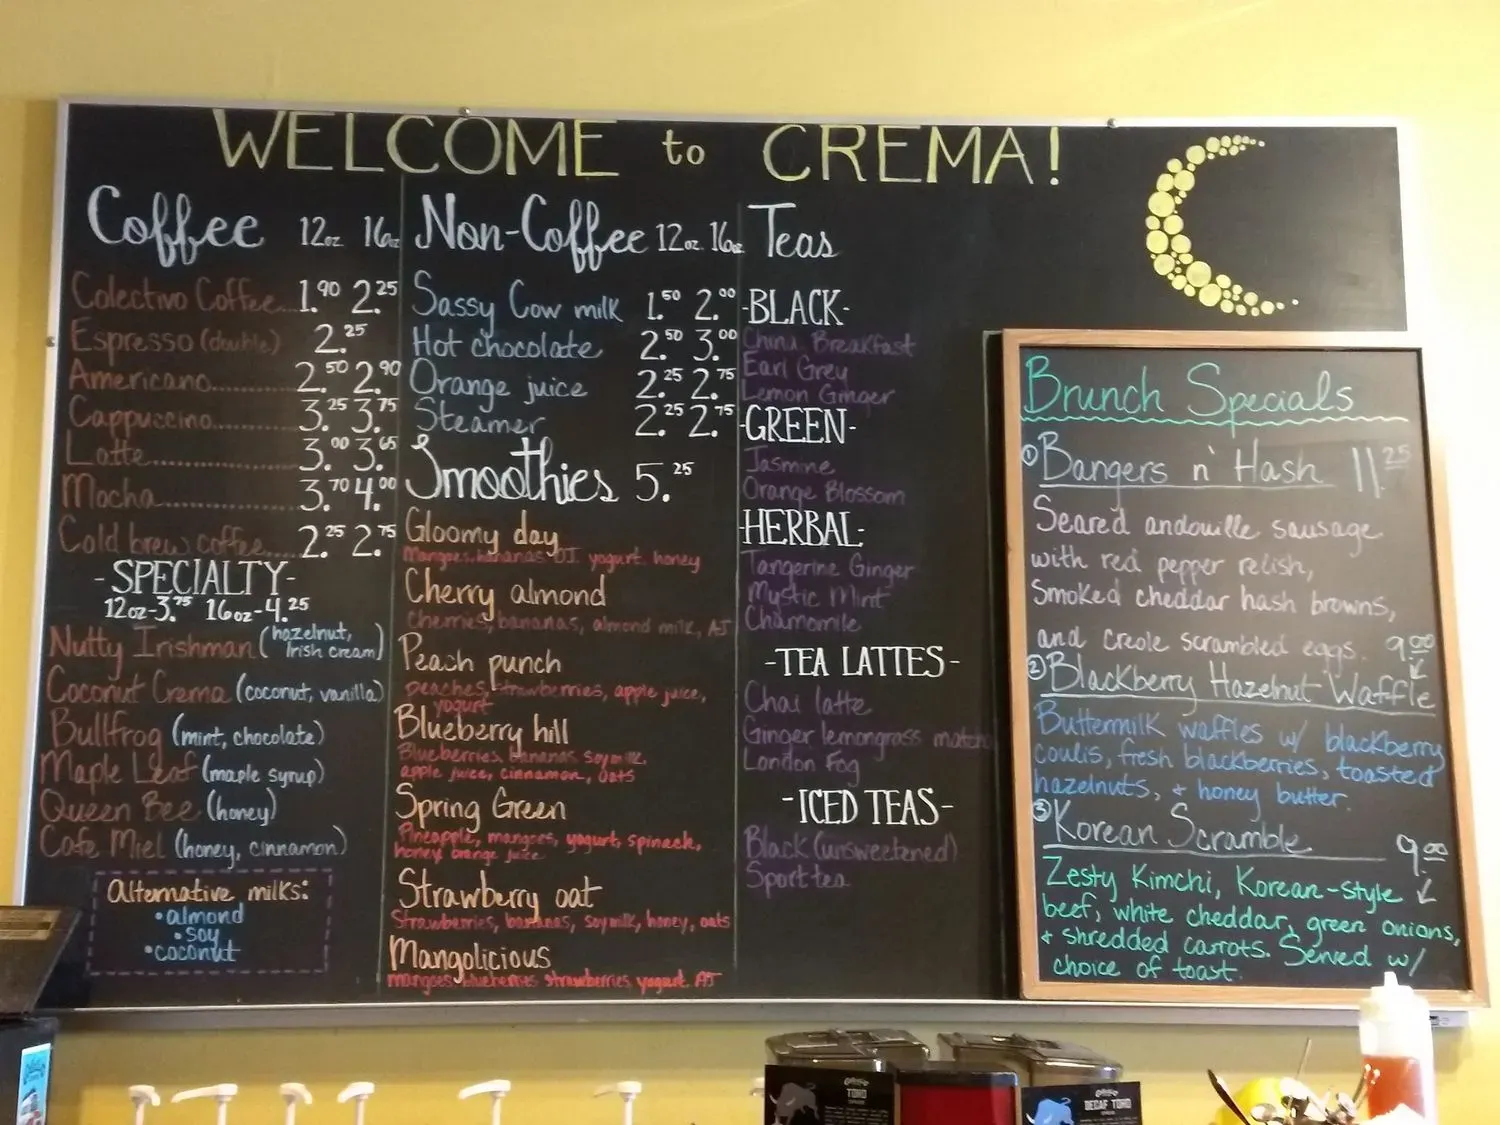 WELCOME to CREMA!
Coffee 12oz 16oz
Colectivo Coffee... 1.90 2.25
Espresso (double) 2.25
Americano......... 2.50 2.90
Cappuccino......... 3.25 3.75
Latte................ 3.00 3.65
Mocha............... 3.70 4.00
Cold brew coffee.... 2.25 2.75
-SPECIALTY-
12oz-3.75 16oz-4.25
Nutty Irishman (hazelnut,
Irish cream)
Coconut Crema (coconut, vanilla)
Bullfrog (mint, chocolate)
Maple Leaf (maple syrup)
Queen Bee (honey)
Cafe Miel (honey, cinnamon)
Alternative milks:
•almond
•soy
•coconut
Non-Coffee 12oz 16oz
Sassy Cow milk 1.50 2.00
Hot chocolate 2.50 3.00
Orange juice 2.25 2.75
Steamer 2.25 2.75
Smoothies 5.25
Gloomy day
Mangoes, bananas OJ yogurt honey
Cherry almond
cherries, bananas, almond milk, AJ
Peach punch
peaches, strawberries, apple juice,
yogurt
Blueberry hill
Blueberries, bananas soymilk,
apple juice, cinnamon, oats
Spring Green
Pineapple, mangoes, yogurt, spinach,
honey orange juice
Strawberry oat
Strawberries, bananas, soymilk, honey, oats
Mangolicious
mangoes blueberries strawberries yogurt AJ
Teas
-BLACK-
China Breakfast
Earl Grey
Lemon Ginger
-GREEN-
Jasmine
Orange Blossom
-HERBAL-
Tangerine Ginger
Mystic Mint
Chamomile
-TEA LATTES-
Chai latte
Ginger lemongrass matcha
London Fog
-ICED TEAS-
Black (unsweetened)
Sport tea
Brunch Specials
① Bangers n' Hash 11.25
Seared andouille sausage
with red pepper relish,
smoked cheddar hash browns,
and creole scrambled eggs. 9.00
② Blackberry Hazelnut Waffle
Buttermilk waffles w/ blackberry
coulis, fresh blackberries, toasted
hazelnuts, + honey butter.
③ Korean Scramble 9.00
Zesty Kimchi, Korean-style
beef, white cheddar, green onions,
+ shredded carrots. Served w/
choice of toast.
TORO
DECAF TORO